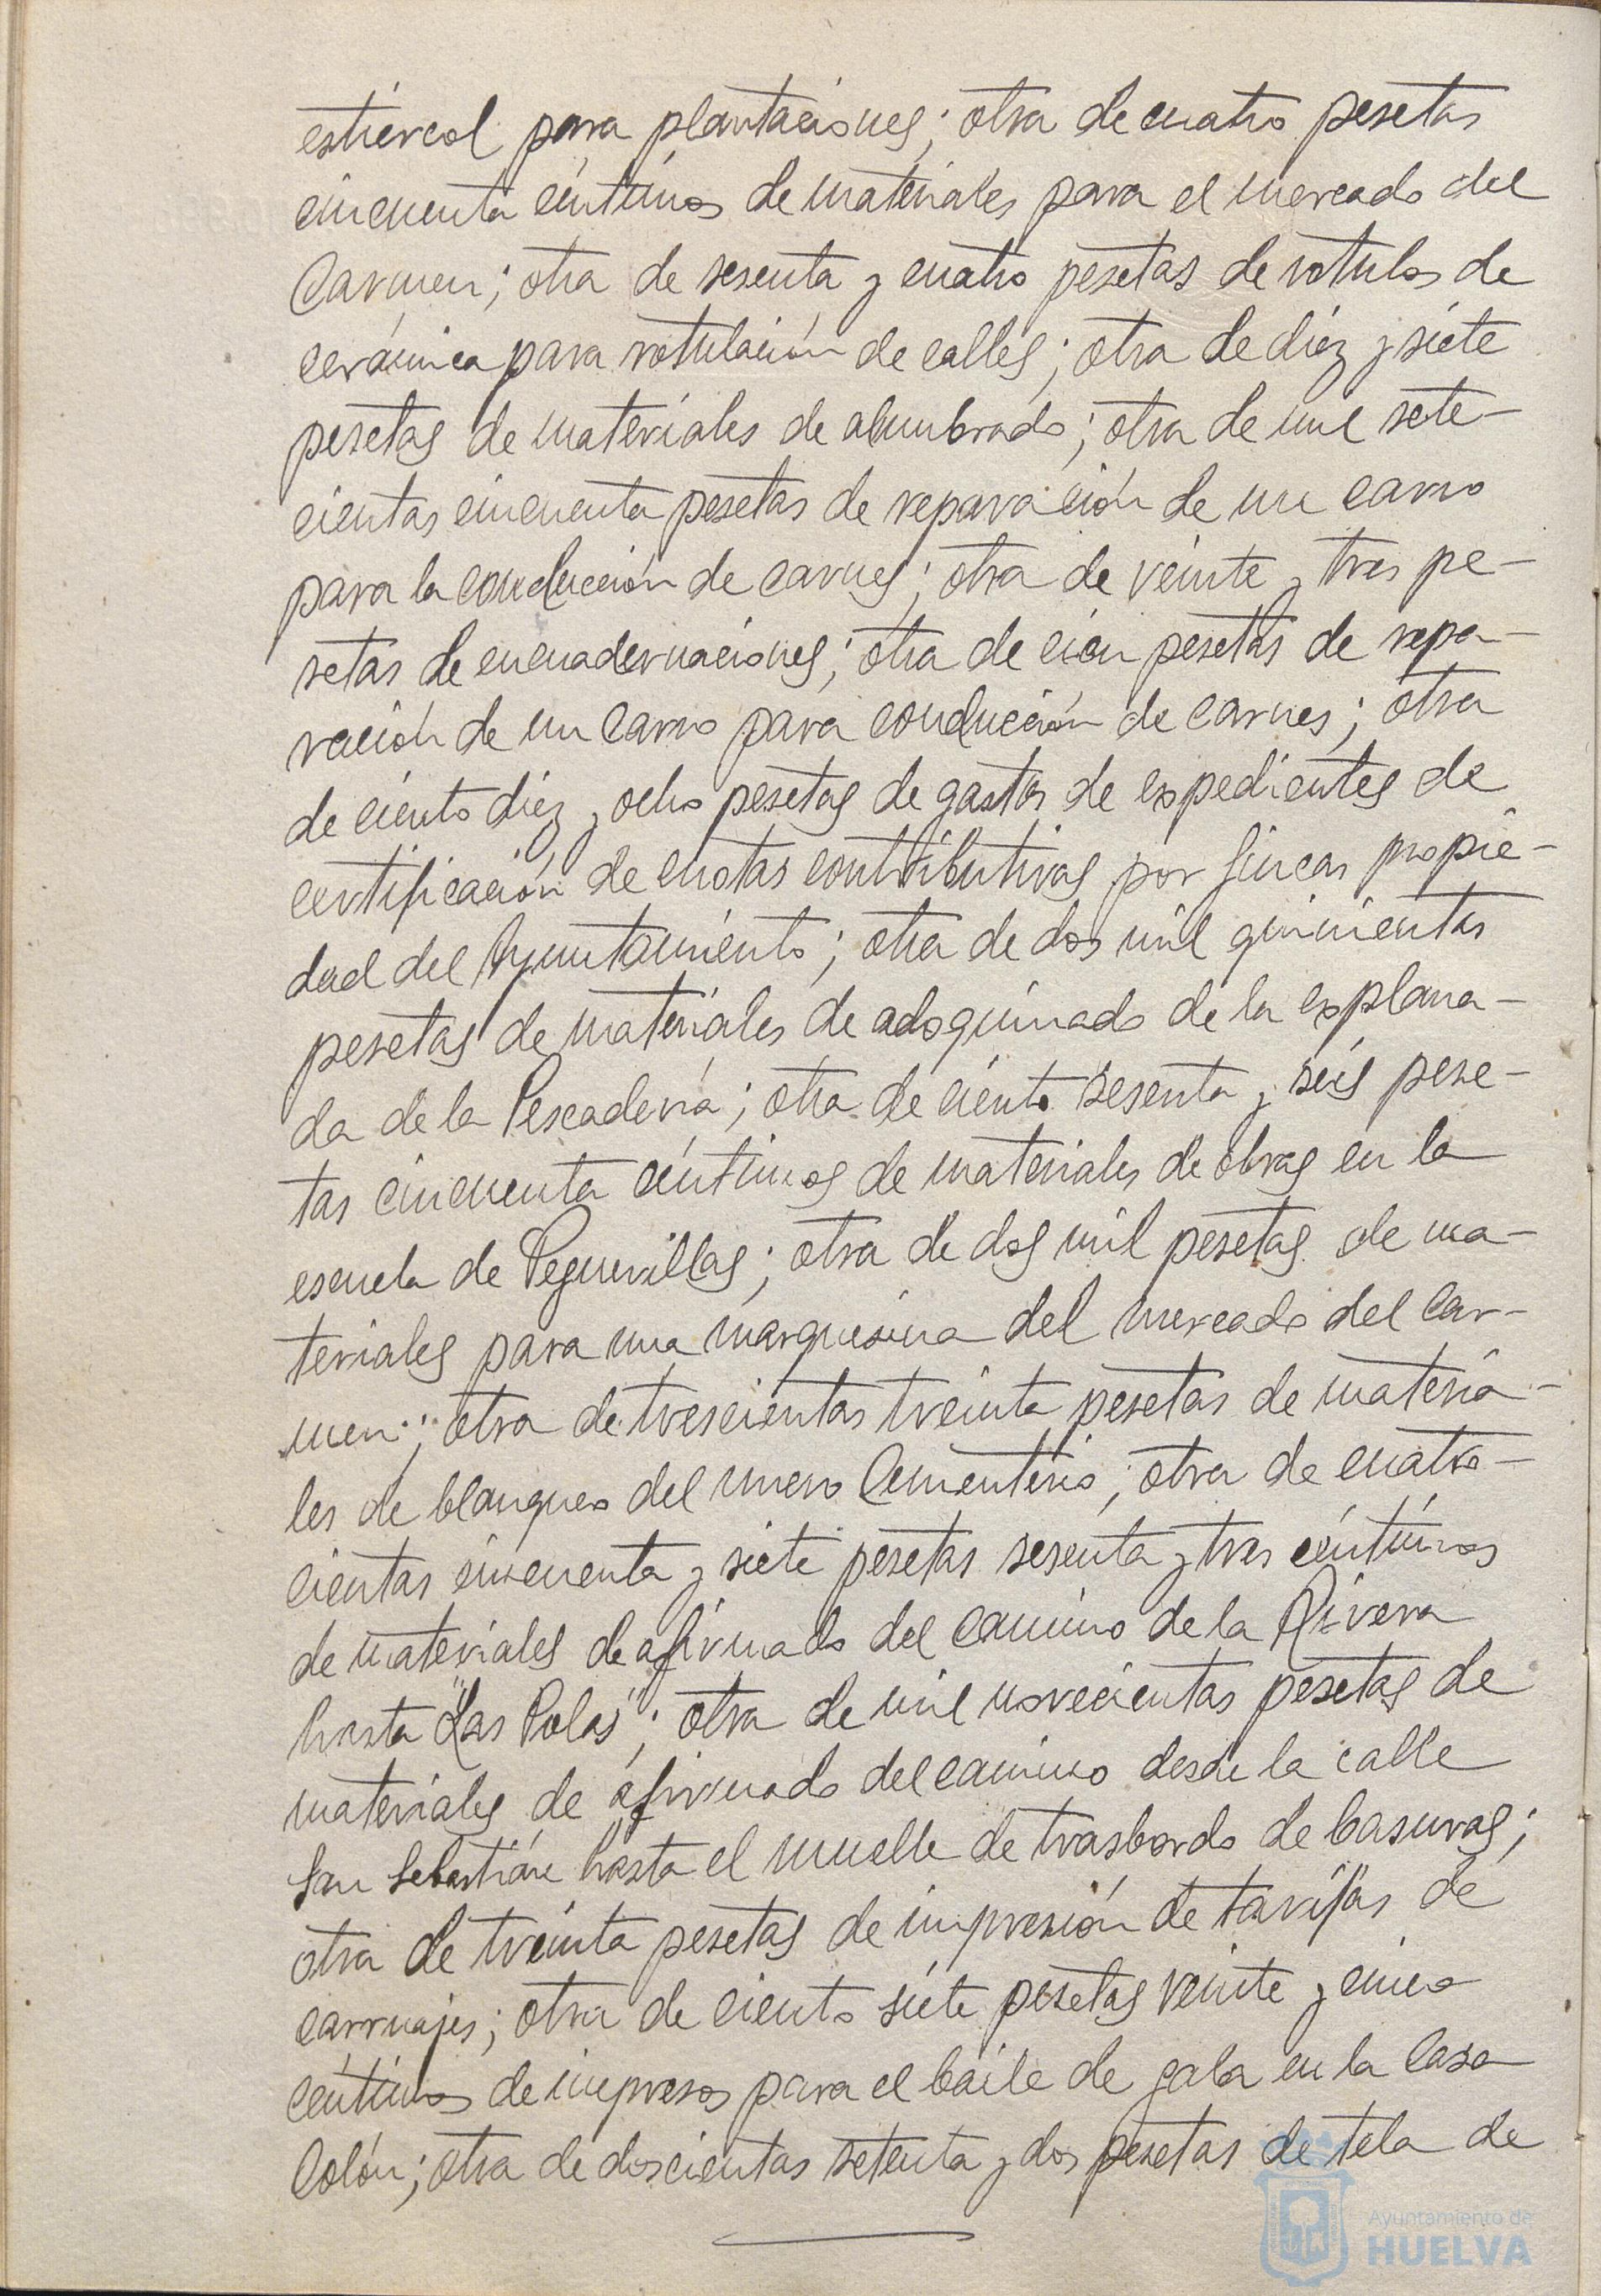 estiércol para plantaciones; otra de cuatro pesetas
cincuenta céntimos de materiales para el mercado del
Carmen; otra de sesenta y cuatro pesetas de rotulos de
cerámica para rotulación de calles; otra de diez y siete
pesetas de materiales de alumbrado; otra de mil sete-
cientas cincuenta pesetas de reparación de un carro
para la conducción de carnes; otra de veinte y tres pe-
setas de encuadernaciones; otra de cien pesetas de repa-
ración de un carro para conducción de carnes; otra
de ciento diez y ocho pesetas de gastos de expedientes de
certificación de cuotas contributivas por fincas propie-
dad del Ayuntamiento; otra de dos mil quinientas
pesetas de materiales de adoquinado de la explana-
da de la Pescadería; otra de ciento sesenta y seis pese-
tas cincuenta céntimos de materiales de obras en la
escuela de Peguerillas; otra de dos mil pesetas de ma-
teriales para una marquesina del mercado del Car-
men; otra de trescientas treinta pesetas de materia-
les de blanqueo del nuevo Cementerio; otra de cuatro-
cientas cincuenta y siete pesetas sesenta y tres céntimos
de materiales de afirmado del camino de la Rivera
hasta "Las Polas"; otra de mil novecientas pesetas de
materiales de afirmado del camino desde la calle
San Sebastián hasta el muelle de trasbordo de basuras;
otra de treinta pesetas de impresión de tarifas de
carruajes; otra de ciento siete pesetas veinte y cinco
céntimos de impresos para el baile de gala en la Casa
Colón; otra de doscientas setenta y dos pesetas de tela de
Ayuntamiento de
HUELVA